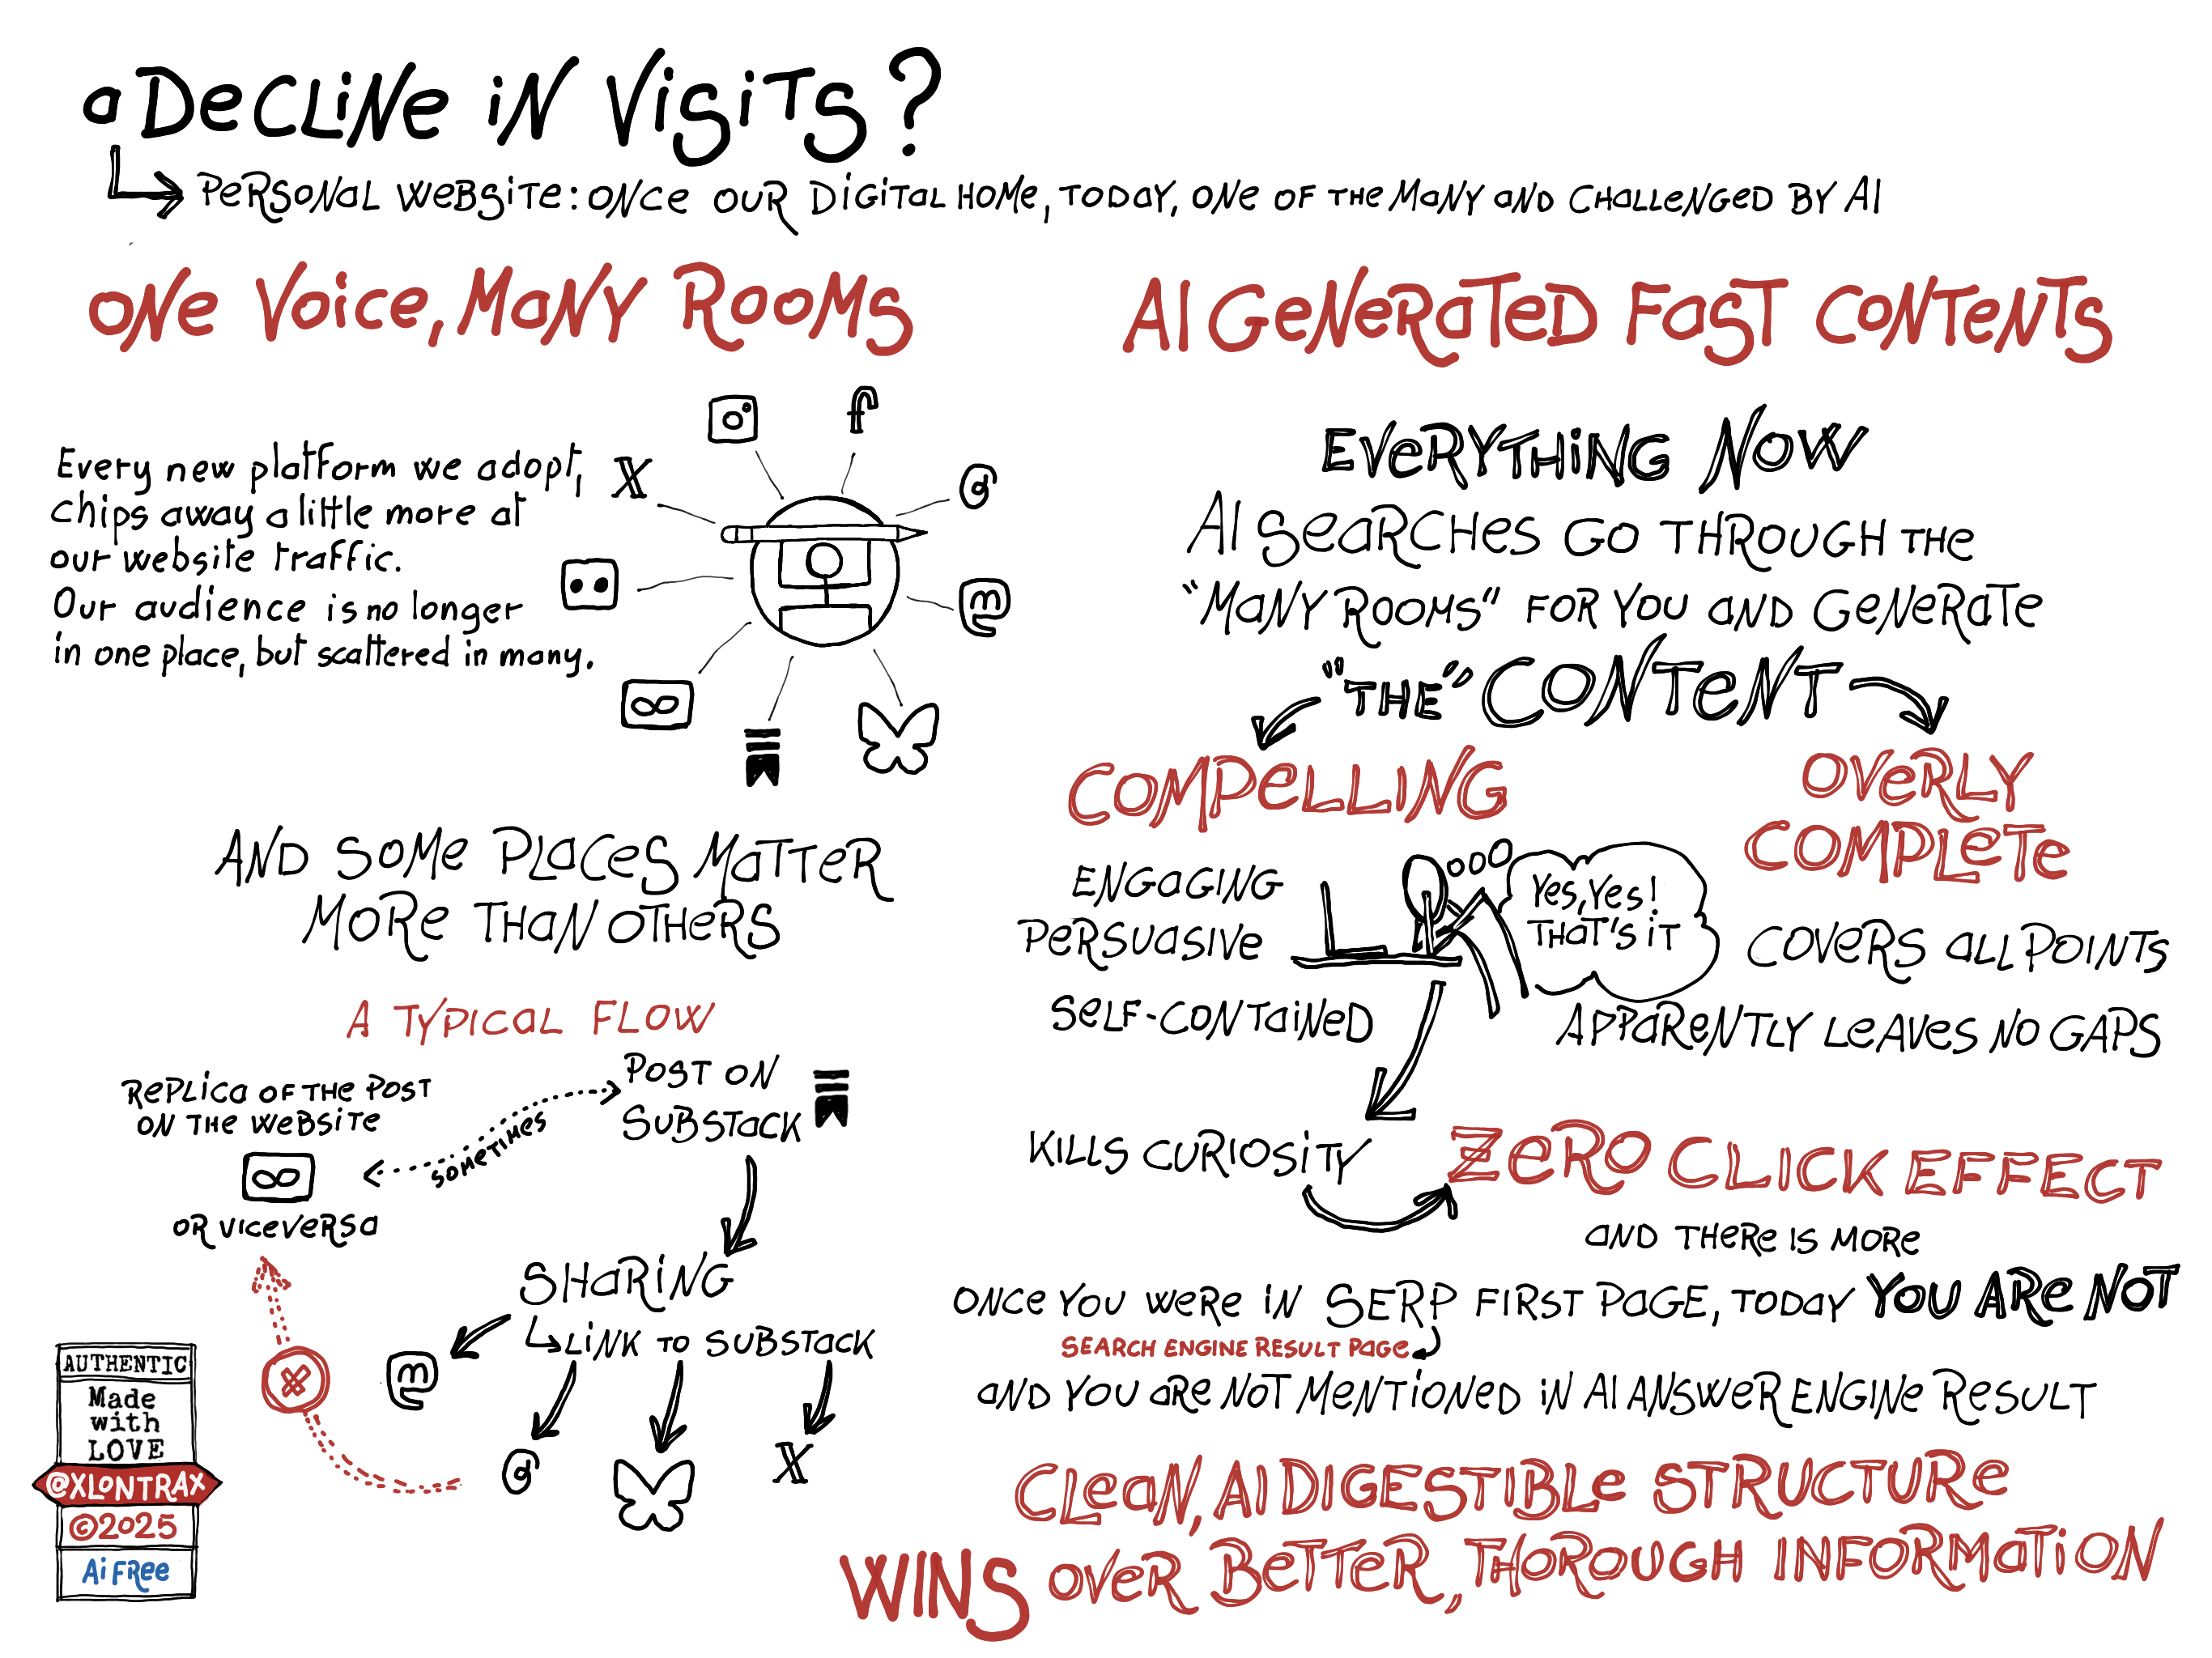 a Decline in Visits?
Personal Website: once our digital home, today, one of the many and challenged by AI
One Voice, Many Rooms
Every new platform we adopt,
chips away a little more at
our website traffic.
Our audience is no longer
in one place, but scattered in many.
X
f
m
And some places matter
more than others
A typical flow
Replica of the post
on the website
or viceversa
sometimes
Post on
Substack
Sharing
Link to Substack
m
X
AUTHENTIC
Made
with
LOVE
@XLONTRAX
©2025
Ai Free
AI Generated Fast Contents
Everything Now
AI searches go through the
"Many Rooms" for you and generate
"the" content
Compelling
Engaging
Persuasive
Self-contained
Yes, Yes!
That's it
Overly
Complete
Covers all points
Apparently leaves no gaps
Kills curiosity
Zero Click Effect
and there is more
Once you were in SERP first page, today you are not
Search Engine Result Page
and you are not mentioned in AI answer engine result
Clean, AI digestible structure
wins over better, thorough information